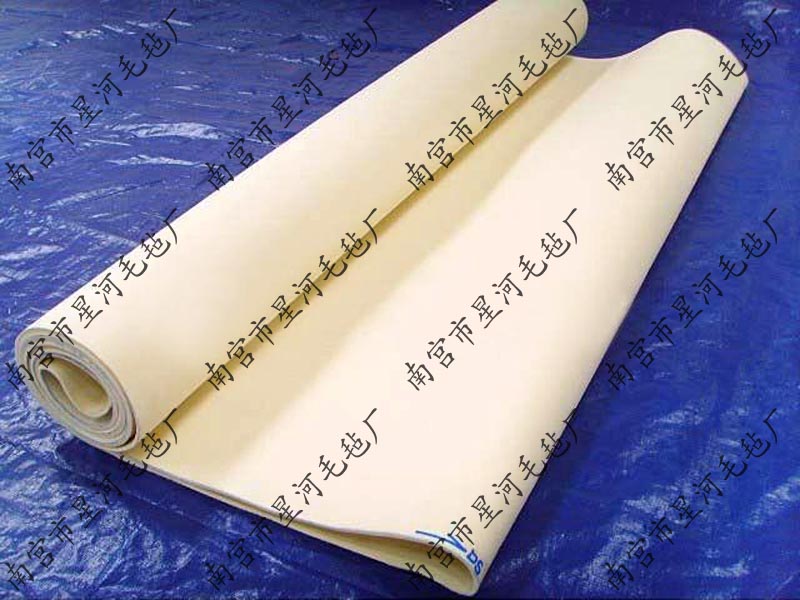 南宫市星河毛毡厂
南宫市星河毛毡厂
南宫市星河毛毡厂
南宫市星河毛毡厂
南宫市星河毛毡厂
南宫市星河毛毡厂
南宫市星河毛毡厂
南宫市星河毛毡厂
南宫市星河毛毡厂
南宫市星河毛毡厂
南宫市星河毛毡厂
南宫市星河毛毡厂